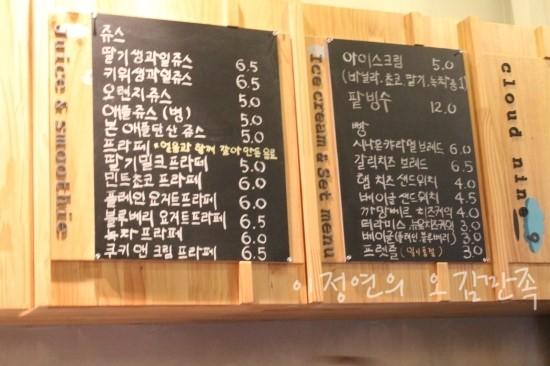 Juice & smoothie
쥬스
딸기 생과일쥬스 6.5
키위생과일쥬스 6.5
오렌지쥬스 5.0
애플쥬스 (병) 5.0
본 애플탄산 쥬스 5.0
프라페 *얼음과 함께 갈아만든음료
딸기밀크프라페 5.0
민트초코 프라페 6.0
플레인 요거트프라페 6.0
블루베리 요거트프라페 6.5
녹차 프라페 6.0
쿠키 앤 크림 프라페 6.5
Ice cream & Set menu
아이스크림 5.0
(바닐라, 초코, 딸기, 녹차 중 1)
팥빙수 12.0
빵
시나몬캬라멜 브레드 6.0
갈릭치즈 브레드 6.5
햄 치즈 샌드위치 4.0
베이글 샌드위치 4.5
까망베르 치즈케익 4.0
티라미스, 뉴욕치즈케익 3.0
베이글(플레인,블루베리) 3.0
프렛즐 3.0
cloud nine 9
이정연의 오감만족